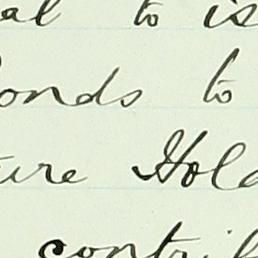 al to is
onds to
ure Hol
contrib